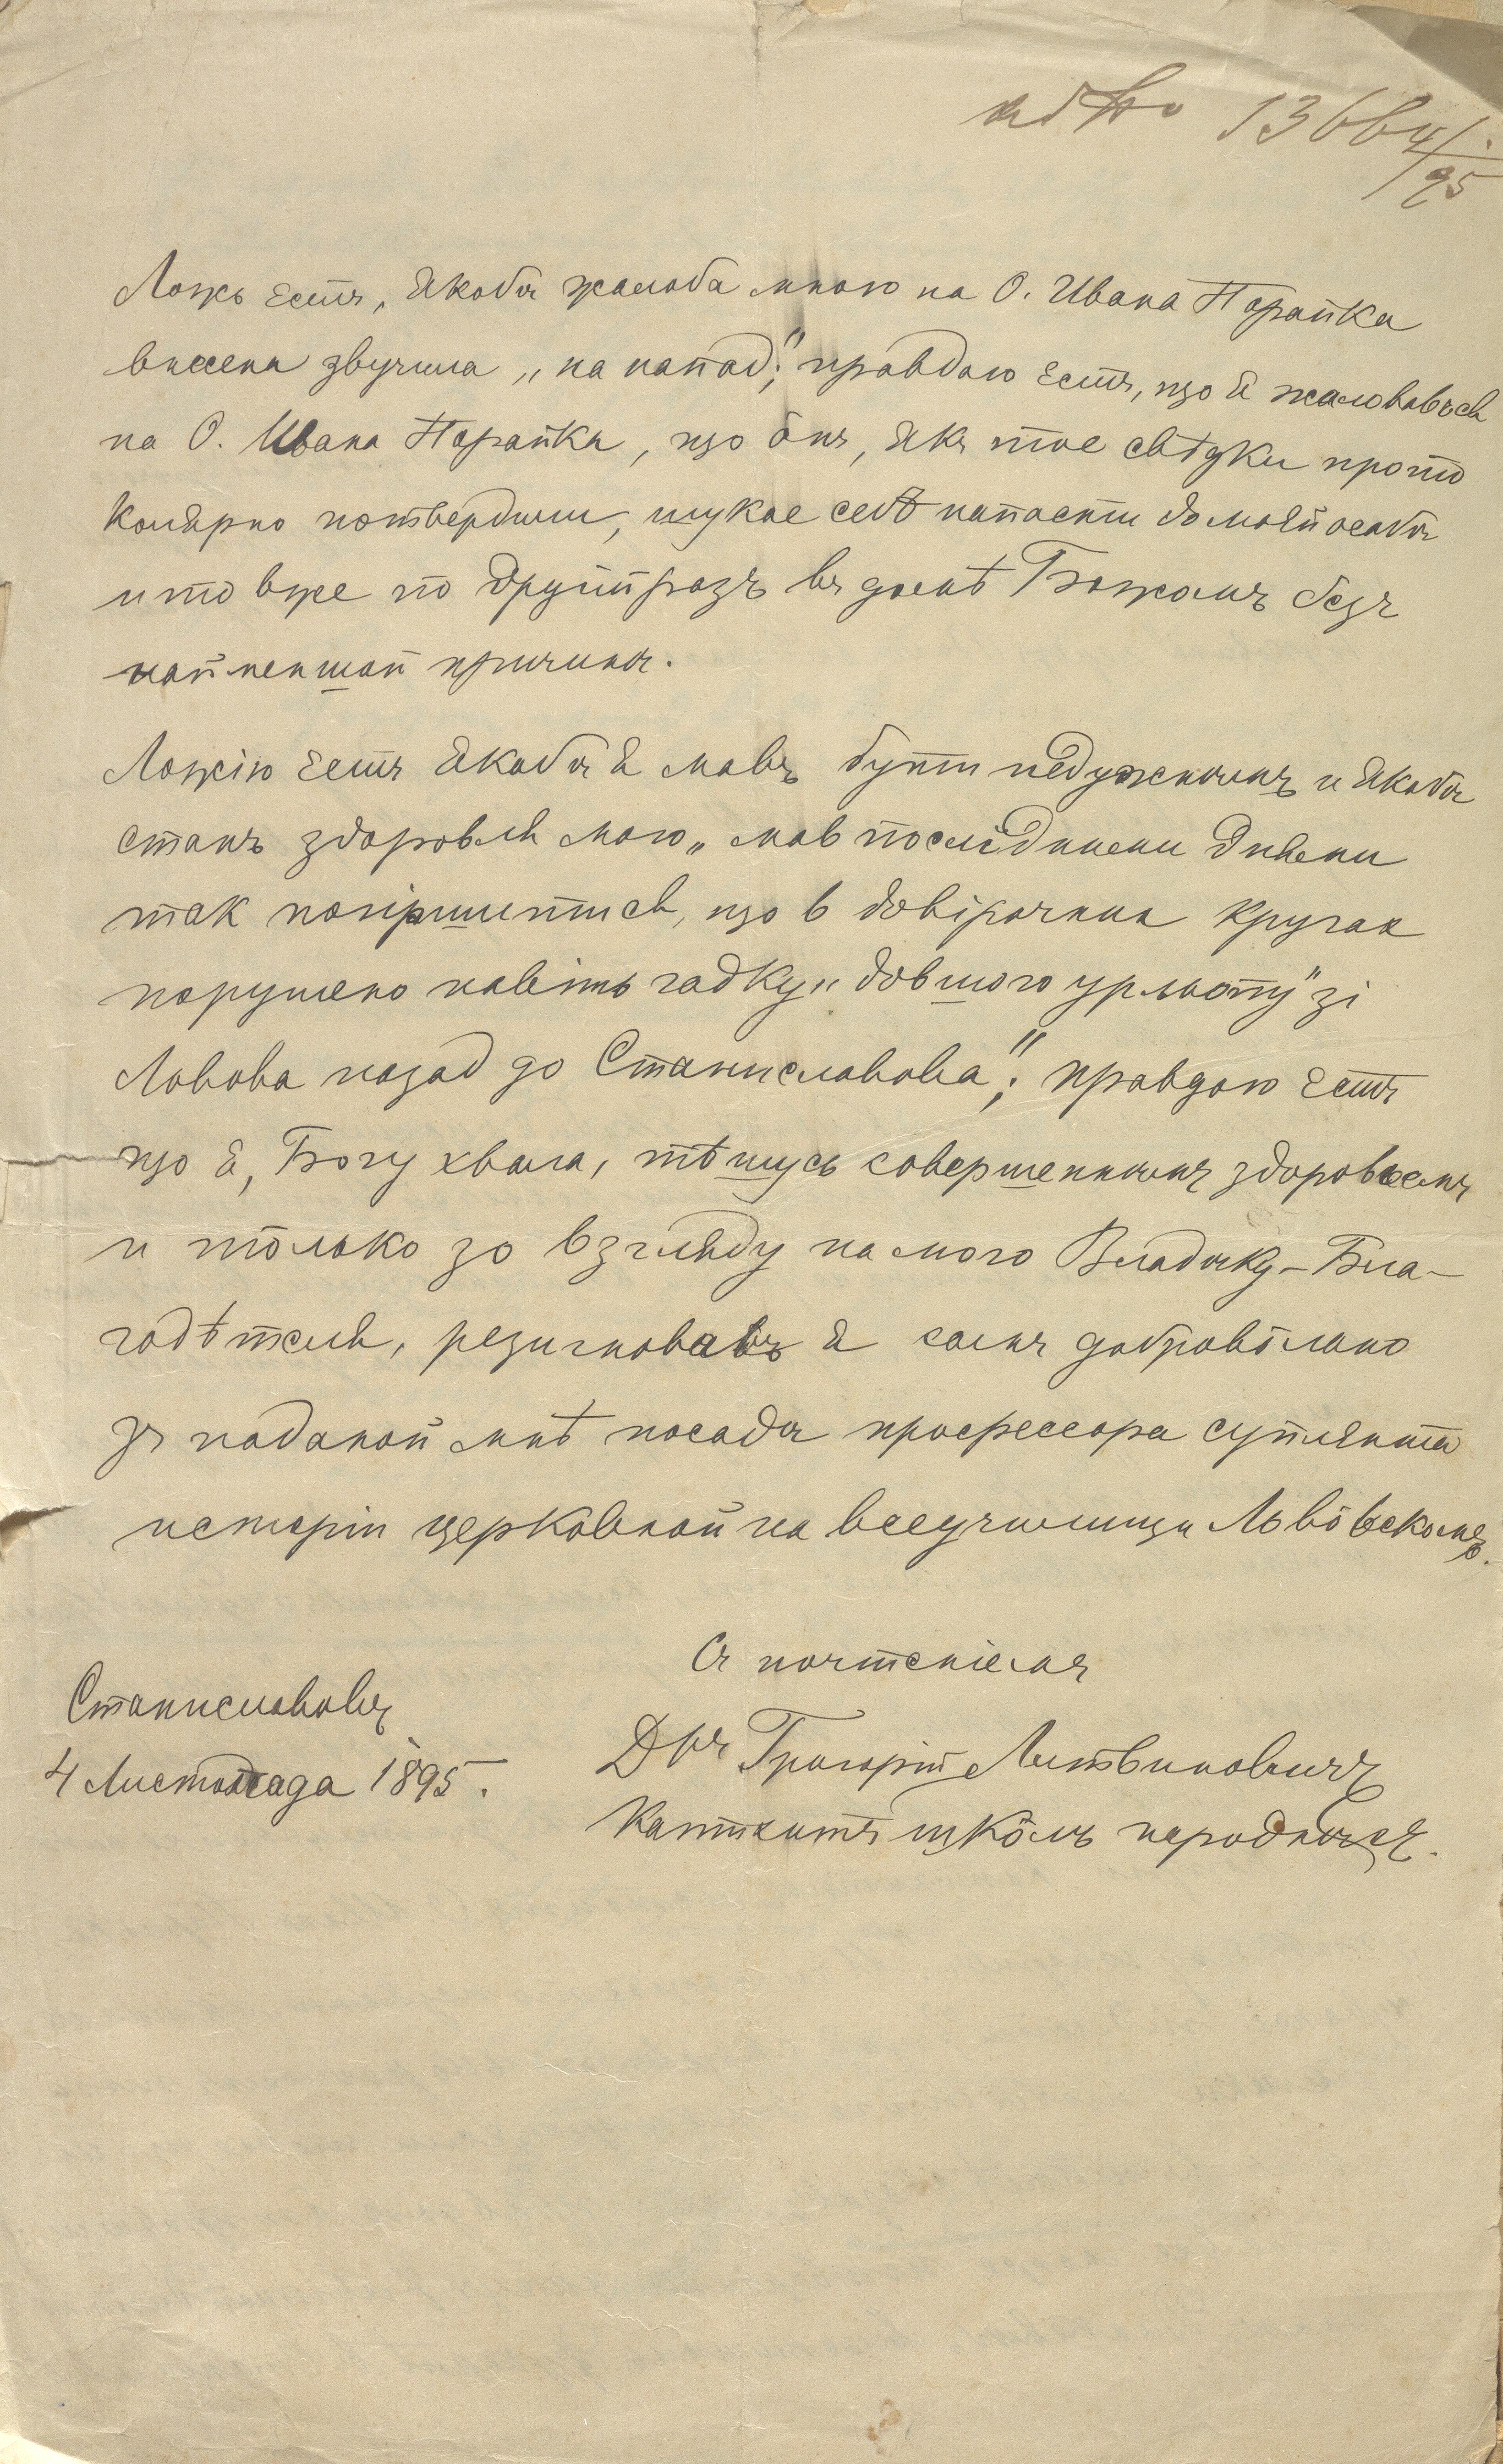 ad No 13664/95
Ложь есть, якобы жалоба мною на О. Ивана Горалка
внесена звучила „на напад;" правдою есть, що я жаловавъся
на О. Ивана Горалка, що ôнъ, якъ тое свѣдки прото
колярно потвердили, шукае себѣ напасти до моєй особы
и то вже по другій разъ въ домѣ Божомъ безъ
найменшой причины.
Ложію есть якобы я мавъ бути недужнымъ и якобы
станъ здоровля мого „мав послїдними днями
так погіршитися, що в довірочних кругах
порушено навіть гадку „довшого урльопу" зі
Львова назад до Станиславова"; правдою есть
що я, Богу хвала, тѣшусь совершеннымъ здоровьемъ
и тôлько зо взгляду на мого Владыку-Бла-
годѣтеля, резигновавъ я самъ добровôльно
зъ наданой мнѣ посады професcора суплента
исторіи церковной на всеучилищи Львôвскомъ.
Съ почтеніемъ
Станиславовъ
4 Листопада 1895.
Дръ Григорій Литвиновичъ
Катихитъ шкôлъ народныхъ.